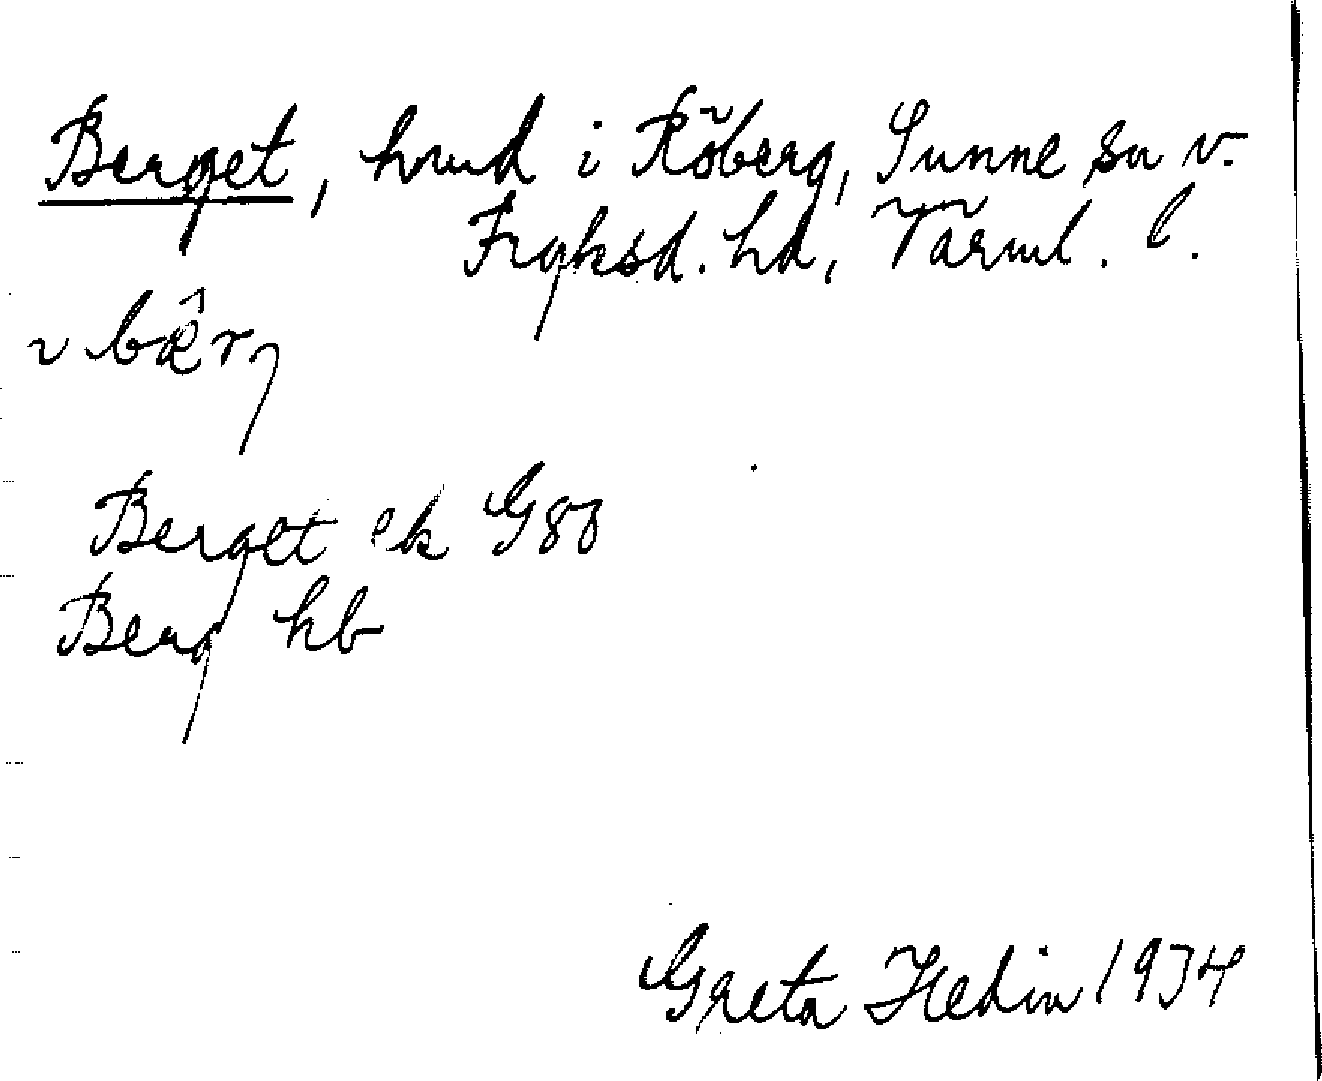 Berget, hmd i Röberg, Sunne sn v.
Fryksd. hd, Värml. l.
Berget ek G80
Berg hb
Greta Hedin 1934